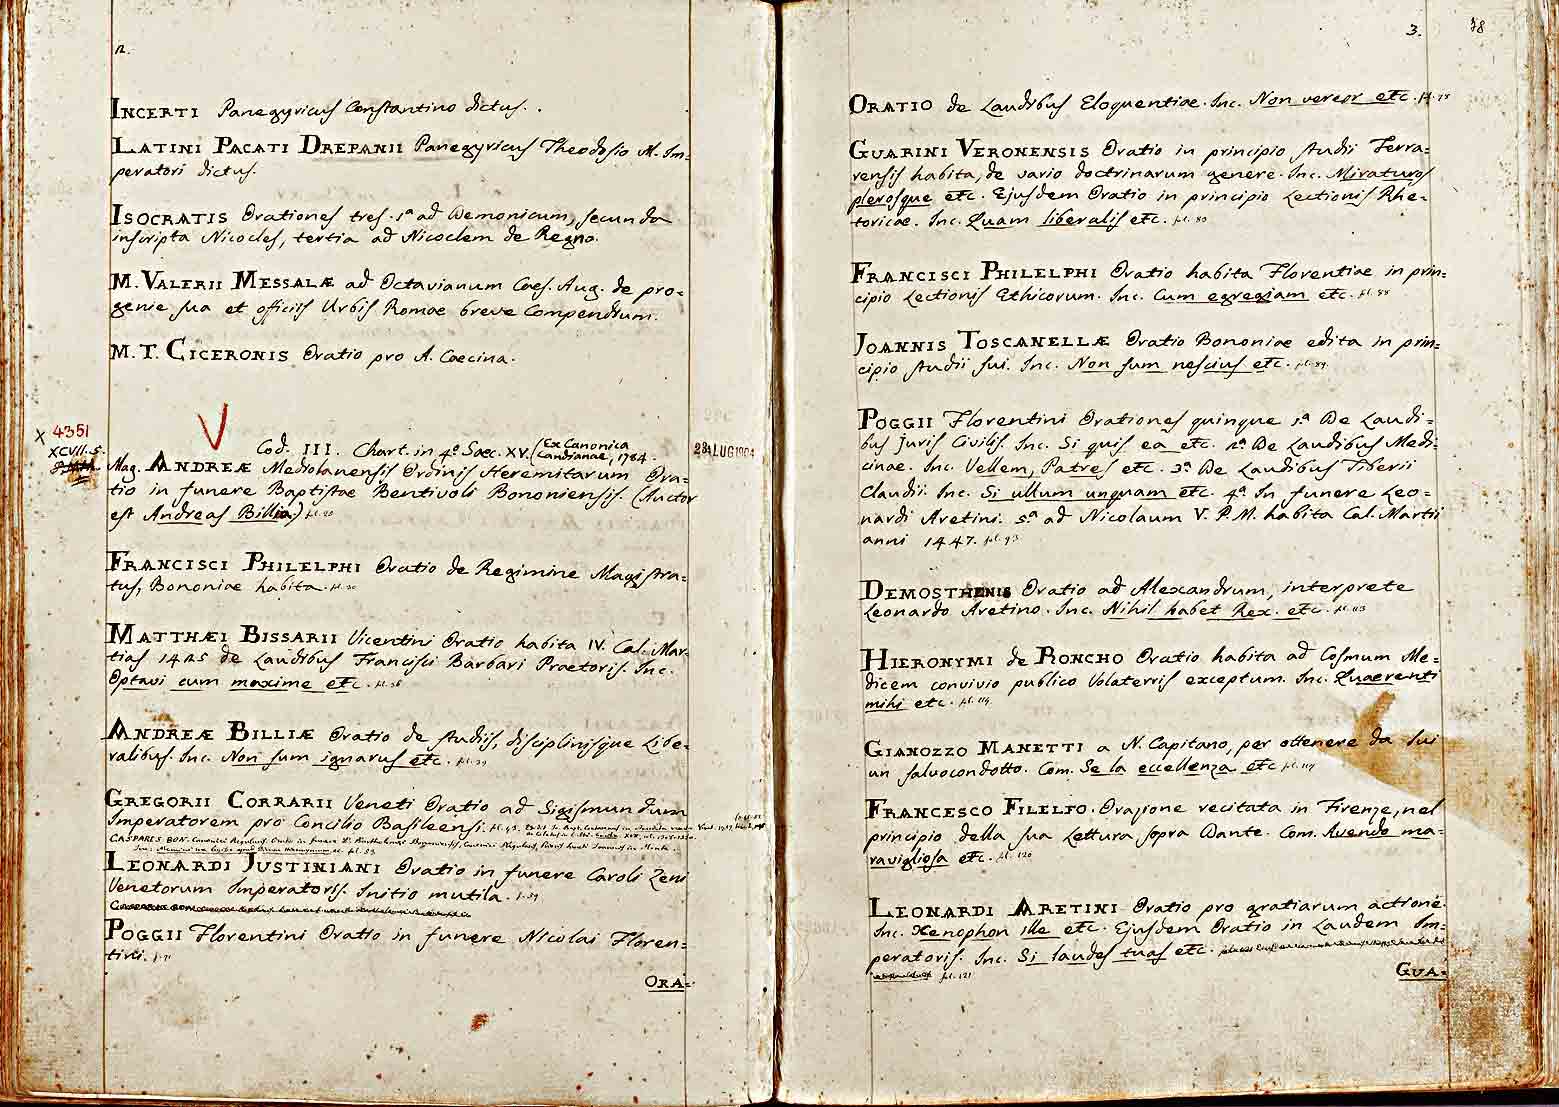 2.
INCERTI Panegyricus Constantino dictus.
LATINI PACATI DREPANII Panegyricus Theodosio M. Im=
peratori dictus.
ISOCRATIS Orationes tres. 1ª ad Demonicum, secunda
inscripta Nicocles, tertia ad Nicoclem de Regno.
M. VALERII MESSALÆ ad Octavianum Caes. Aug. de pro=
genie sua et officiis Urbis Romae breve Compendium.
M. T. CICERONIS Oratio pro A. Caecina.
V
X 4351
XCVII.5.
Cod. III. Chart. in 4º Saec. XV. (Ex Canonica
Candianae, 1784.
28 LUG 1904
Mag. ANDREÆ Mediolanensis Ordinis Heremitarum Ora=
tio in funere Baptistae Bentivoli Bononiensis. (Auctor
est Andreas Billia.) fol. 20
FRANCISCI PHILELPHI Oratio de Regimine Magistra=
tus, Bononiae habita. fol. 30
MATTHÆI BISSARII Vicentini Oratio habita IV. Cal. Mar=
tias 1425 de Laudibus Francisci Barbari Praetoris. Inc.
Optavi cum maxime etc. fol. 36
ANDREÆ BILLIÆ Oratio de studiis, disciplinisque Libe=
ralibus. Inc. Non sum ignarus etc. fol. 39
GREGORII CORRARII Veneti Oratio ad Sigismundum
Imperatorem pro Concilio Basileensi. fol. 45.
CASPARES BON.
LEONARDI JUSTINIANI Oratio in funere Caroli Zeni
Venetorum Imperatoris. Initio mutila. f. 59
POGGII Florentini Oratio in funere Nicolai Floren=
tini. f. 71
ORA=
3.
38
ORATIO de Laudibus Eloquentiae. Inc. Non vereor etc. fol. 78
GUARINI VERONENSIS Oratio in principio studii Ferra=
rensis habita, de vario doctrinarum genere. Inc. Miraturos
plerosque etc. Ejusdem Oratio in principio Lectionis Rhe=
toricae. Inc. Quam liberalis etc. fol. 80
FRANCISCI PHILELPHI Oratio habita Florentiae in prin=
cipio Lectionis Ethicorum. Inc. Cum egregiam etc. fol. 88
JOANNIS TOSCANELLÆ Oratio Bononiae edita in prin=
cipio studii sui. Inc. Non sum nescius etc. fol. 89.
POGGII Florentini Orationes quinque 1ª De Laudi=
bus juris Civilis. Inc. Si quis ea etc. 2ª De Laudibus Medi=
cinae. Inc. Vellem, Patres etc. 3ª De Laudibus Tiberii
Claudii. Inc. Si ullum unquam etc. 4ª In funere Leo=
nardi Aretini. 5ª ad Nicolaum V. P. M. habita Cal. Martii
anni 1447. fol. 93
DEMOSTHENIS Oratio ad Alexandrum, interprete
Leonardo Aretino. Inc. Nihil habet Rex. etc. fol. 113
HIERONYMI de RONCHO Oratio habita ad Cosmum Me=
dicem convivio publico Volaterris exceptum. Inc. Quaerenti
mihi etc. fol. 114.
GIANOZZO MANETTI a N. Capitano, per ottenere da lui
un salvocondotto. Com. Se la eccellenza etc fol. 117
FRANCESCO FILELFO. Orazione recitata in Firenze, nel
principio della sua Lettura sopra Dante. Com. Avendo ma=
ravigliosa etc. fol. 120
LEONARDI ARETINI Oratio pro gratiarum actione.
Inc. Xenophon ille etc. Ejusdem Oratio in Laudem Im=
peratoris. Inc. Si laudes tuas etc.
fol. 121
GUA=